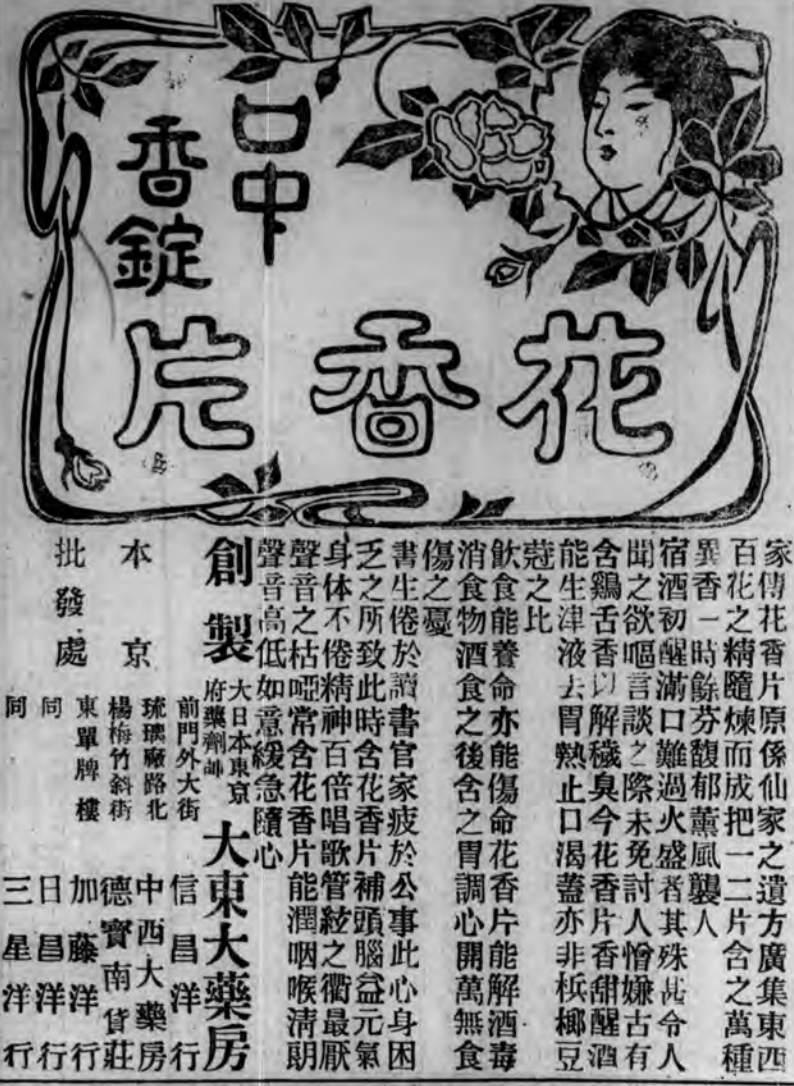 口中
香錠
花香片
家傳花香片原係仙家之遺方廣集東西
百花之精隨煉而成把一二片含之萬種
異香一時餘芬馥郁薰風襲人
宿酒初醒滿口難過火盛者其殊甚令人
聞之欲嘔言談之際未免討人憎嫌古有
含鷄舌香以解穢臭今花香片香甜醒酒
能生津液去胃熱止口渴蓋亦非梹榔豆
蔻之比
飲食能養命亦能傷命花香片能解酒毒
消食物酒食之後含之胃調心開萬無食
傷之憂
書生倦於讀書官家疲於公事此心身困
乏之所致此時含花香片補頭腦益元氣
身体不倦精神百倍唱歌管絃之衢最厭
聲音之枯啞常含花香片能潤咽喉淸朗
聲音高低如意緩急隨心
創製
大日本東京
府藥劑師
大東大藥房
本京
批發處
前門外大街 信昌洋行
琉璃廠路北 中西大藥房
楊梅竹斜街 德寶南貨莊
東單牌樓 加藤洋行
同 日昌洋行
同 三星洋行